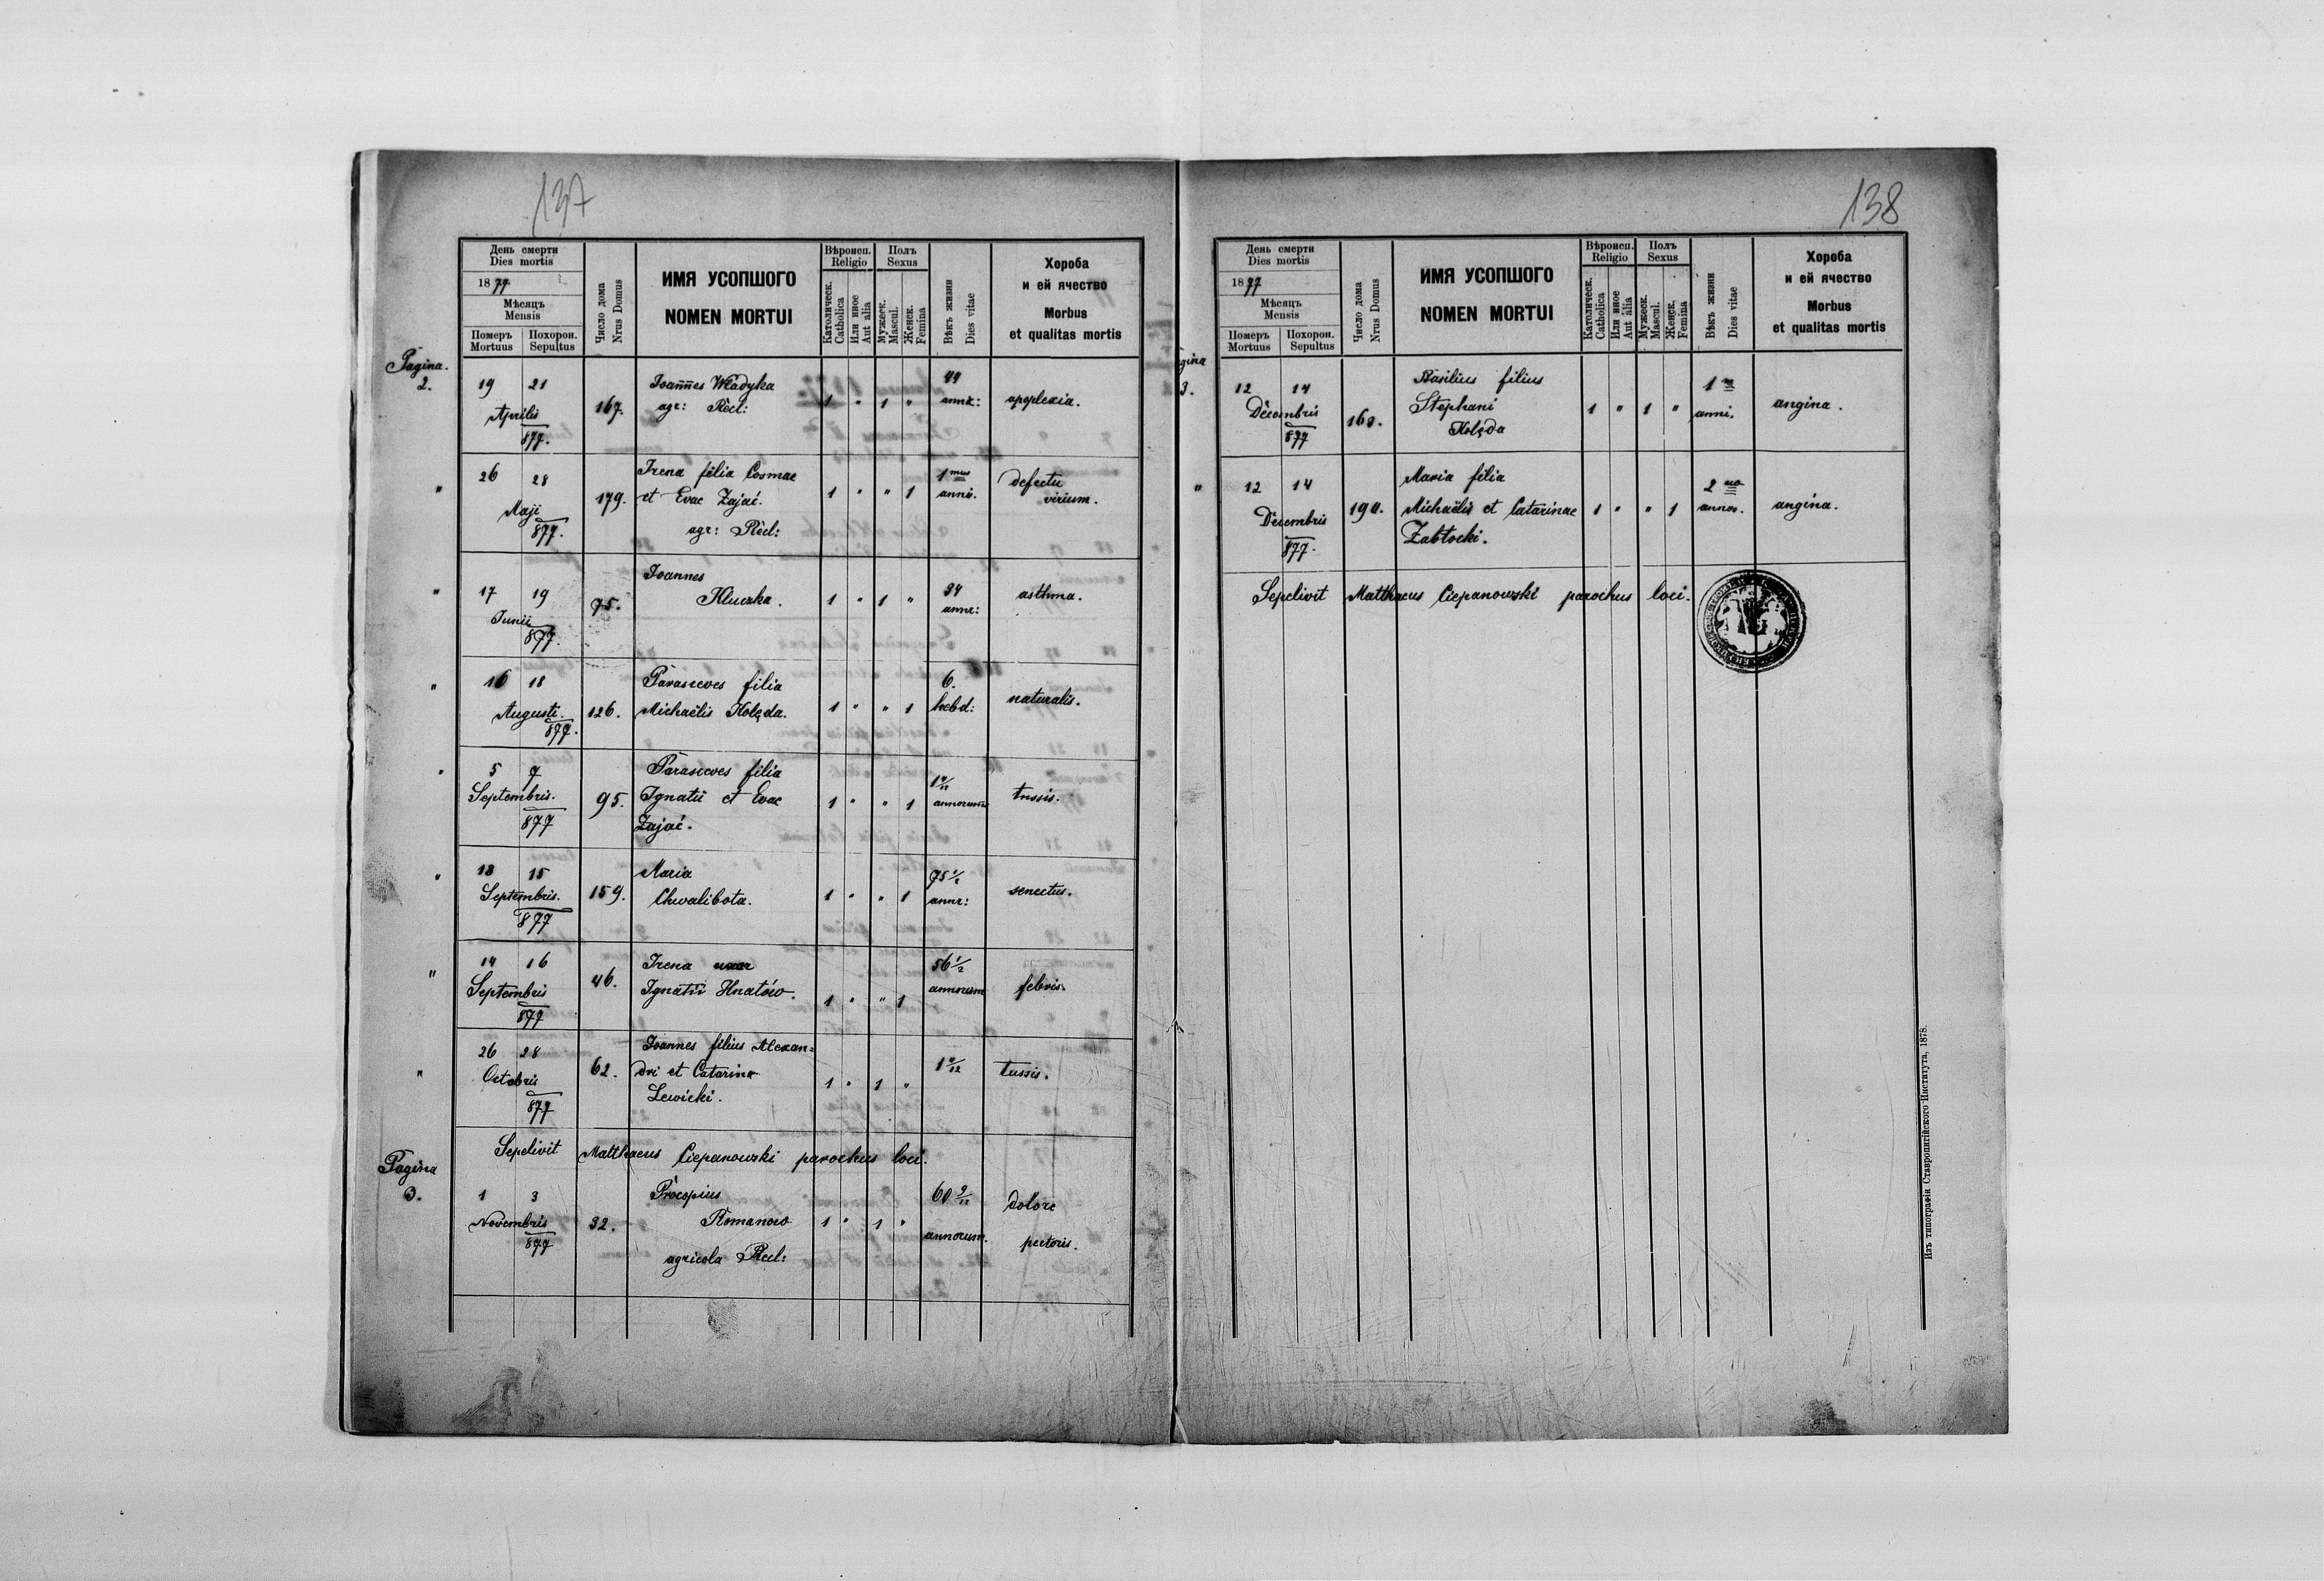 137
День смерти
Dies mortis
1877
Мѣсяцъ
Mensis
Померъ Похорон.
Mortuus Sepultus
Число дома
Nrus Domus
ИМЯ УСОПШОГО
NOMEN MORTUI
Вѣроисп.
Religio
Католическ.
Catholica
Или иное
Aut alia
Полъ
Sexus
Мужеск.
Mascul.
Женск.
Femina
Вѣкъ жизни
Dies vitae
Хороба
и ей ячество
Morbus
et qualitas mortis
Pagina.
2.
19 21
Aprilis
877.
167.
Joannes Władyka
agr: Récl:
1 " 1 "
44
annr:
apoplexia.
"
26 28
Maji
877.
179.
Irena filia Cosmae
et Evae Zajać.
agr: Récl:
1 " " 1
1 mus
anni.
defectu
virium.
"
17 19
Junii
877.
75.
Joannes
Kluczka.
1 " 1 "
34
annr:
asthma.
"
16 18
Augusti.
877.
126.
Parasceves filia
Michaëlis Kolęda.
1 " " 1
6.
hebd:
naturalis.
"
5 7
Septembris.
877
95.
Parasceves filia
Ignatii et Evae
Zajać.
1 " " 1
annorum
tussis.
"
13 15
Septembris.
877
159.
Maria
Chwalibota.
1 " " 1
75 1/2
annr:
senectus.
"
14 16
Septembris
877
46.
Irena uxor
Ignatii Hnatów.
1 " " 1
56 1/2
annorum
febris.
"
26 28
Octobris
877
62.
Joannes filius Alexan=
dri et Catarina
Lewicki.
1 " 1 "
tussis.
Sepelivit Matthaeus Ciepanowski parochus loci.
Pagina
3.
1 3
Novembris
877
32.
Procopius
Romanow
agricola Récl:
1 " 1 "
60 9/12
annorum.
dolore
pectoris.
138
День смерти
Dies mortis
1877
Мѣсяцъ
Mensis
Померъ Похорон.
Mortuus Sepultus
Число дома
Nrus Domus
ИМЯ УСОПШОГО
NOMEN MORTUI
Вѣроисп.
Religio
Католическ.
Catholica
Или иное
Aut alia
Полъ
Sexus
Мужеск.
Mascul.
Женск.
Femina
Вѣкъ жизни
Dies vitae
Хороба
и ей ячество
Morbus
et qualitas mortis
gina
3.
12 14
Decembris
877
Basilius filius
Stephani
Kolęda
1 " 1 "
1
anni.
angina.
"
12 14
Decembris
877.
Maria filia
Michaëlis et Catarinae
Zabłocki.
1 " " 1
2
annor.
angina.
Sepelivit Matthaeus Ciepanowski parochus loci.
Изъ типографіи Ставропигійского Института, 1878.